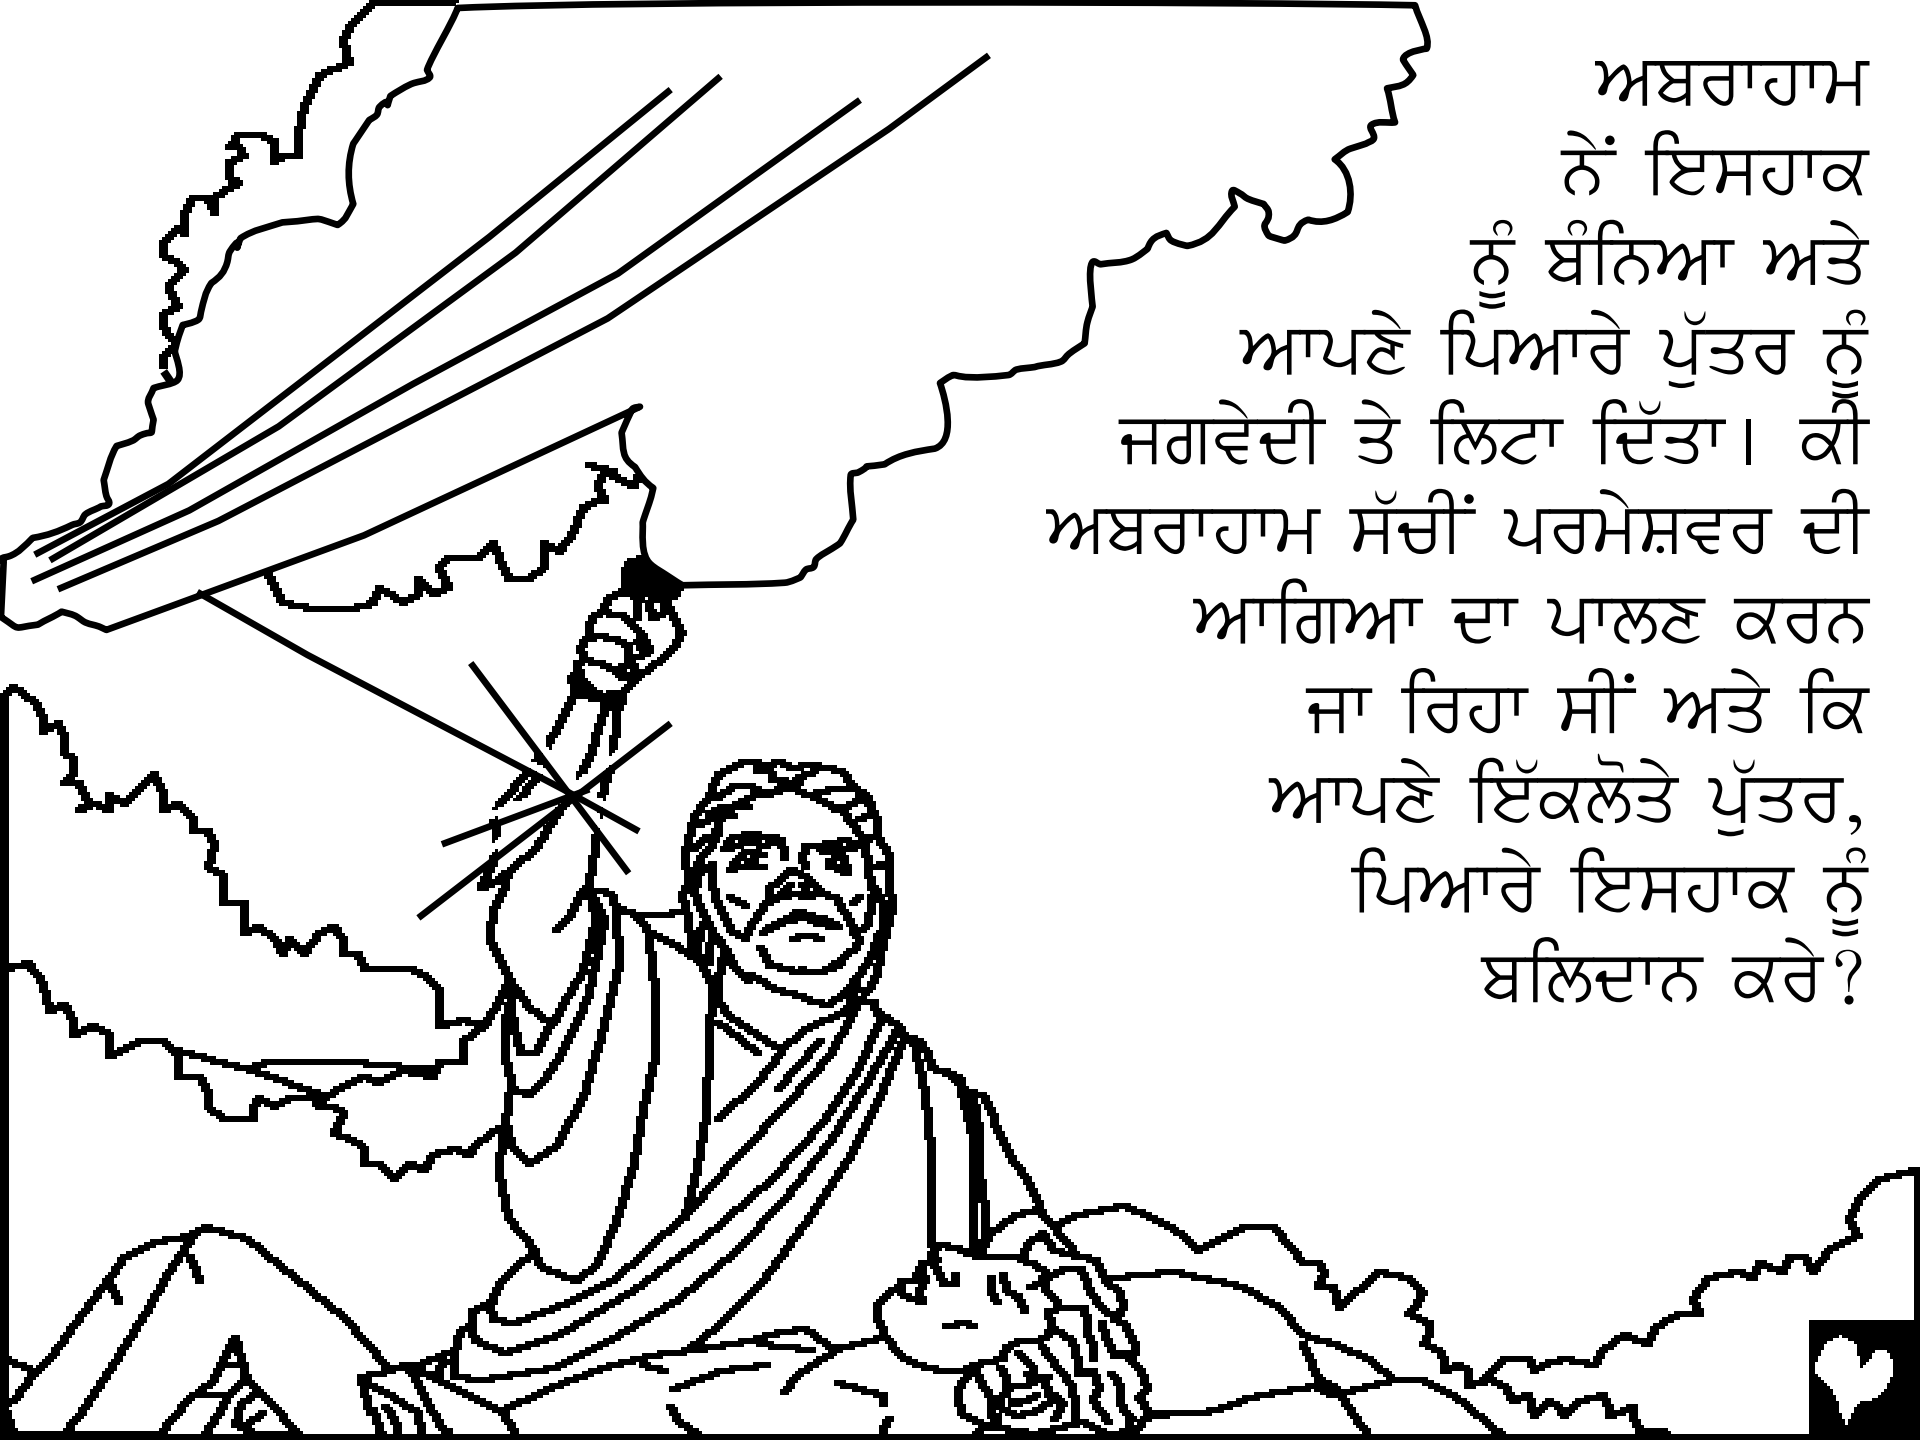 ਅਬਰਾਹਾਮ
ਨੇਂ ਇਸਹਾਕ
ਨੂੰ ਬੰਨਿਆ ਅਤੇ
ਆਪਣੇ ਪਿਆਰੇ ਪੁੱਤਰ ਨੂੰ
ਜਗਵੇਦੀ ਤੇ ਲਿਟਾ ਦਿੱਤਾ। ਕੀ
ਅਬਰਾਹਾਮ ਸੱਚੀਂ ਪਰਮੇਸ਼ਵਰ ਦੀ
ਆਗਿਆ ਦਾ ਪਾਲਣ ਕਰਨ
ਜਾ ਰਿਹਾ ਸੀਂ ਅਤੇ ਕਿ
ਆਪਣੇ ਇੱਕਲੌਤੇ ਪੁੱਤਰ,
ਪਿਆਰੇ ਇਸਹਾਕ ਨੂੰ
ਬਲਿਦਾਨ ਕਰੇ?